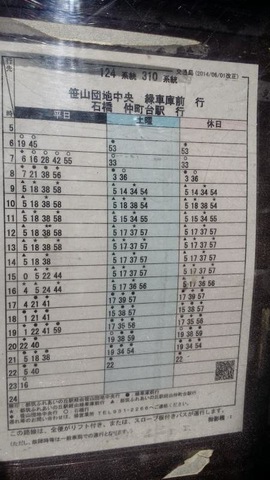 124 系統 310 系統 交通局 (2014/06/01改正)
行先
笹山団地中央 緑車庫前 行
石橋 仲町台駅 行
時 平日 土曜 休日
5
6 19 45 53 53
7 6 16 28 42 55 33 33
8 7 21 38 56 3 36 3 36
9 5 18 38 58 5 14 34 54 5 14 34 54
10 5 18 38 58 5 18 38 54 5 18 38 54
11 5 18 38 58 5 15 34 55 5 15 34 55
12 5 13 38 58 5 17 37 57 5 17 37 57
13 5 18 38 58 5 17 37 57 5 17 37 57
14 5 18 38 5 17 37 57 5 17 37 57
15 0 5 22 44 5 17 37 57 5 17 37 57
16 4 5 24 44 5 17 37 57
17 4 21 41 17 39 57 17 39 57
18 2 21 41 15 37 59 15 37 59
19 1 22 41 59 17 35 56 17 35 56
20 22 40 19 34 54 19 34 54
21 5 22 38 19 34 54 19 34 54
22 5 40 22 22
23 16
24
この路線は、全便がリフト付き、または、スロープ板付きバスが運行します。